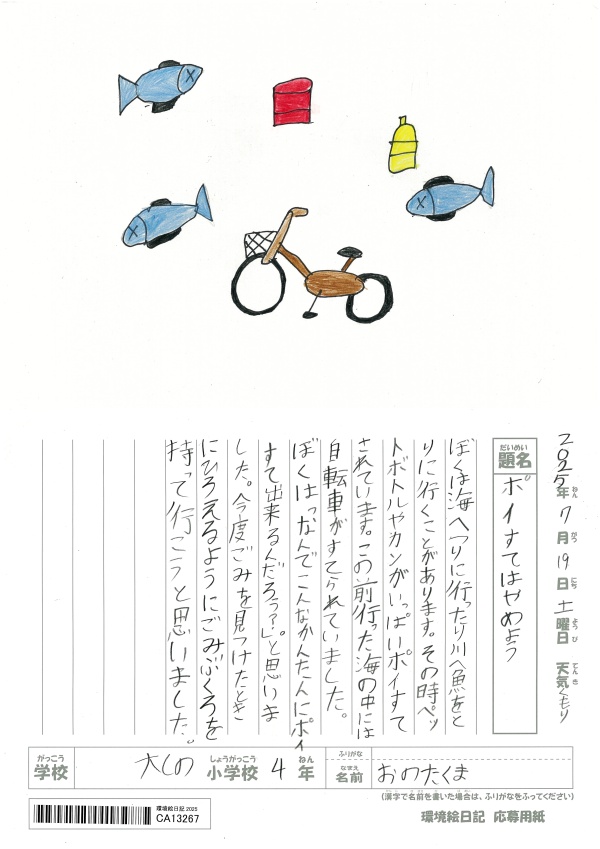 2025年7月19日土曜日 天気くもり
ねん がつ にち ようび てんき
だいめい
題名 ポイすてはやめよう
ぼくは海へつりに行ったり川へ魚をと
りに行くことがあります。その時ペッ
トボトルやカンがいっぱいポイすて
されています。この前行った海の中には
自転車がすてられていました。
ぼくは「なんでこんなかんたんにポイ
すて出来るんだろう?」と思いま
した。今度ごみを見つけたとき
にひろえるようにごみぶくろを
持って行こうと思いました。
がっこう しょうがっこう ねん ふりがな
学校 大しの 小学校 4年
なまえ
名前 おのたくま
(漢字で名前を書いた場合は、ふりがなをふってください)
環境絵日記 応募用紙
環境絵日記 2025
CA13267